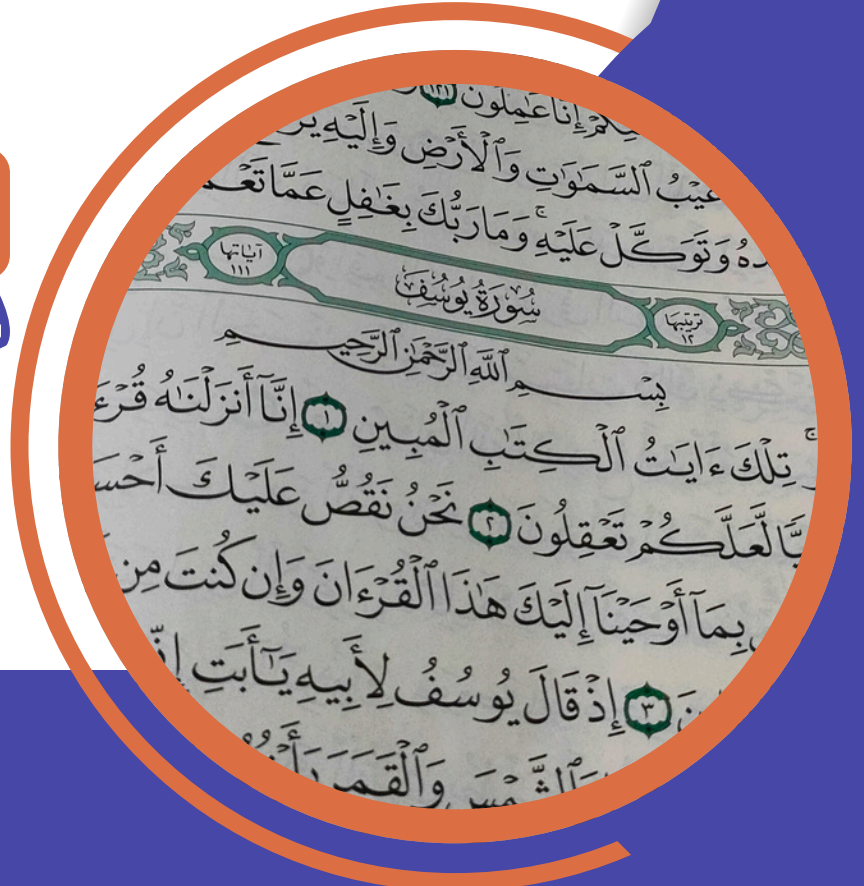 إِنَّا عَٰمِلُونَ
غَيْبُ ٱلسَّمَٰوَٰتِ وَٱلْأَرْضِ وَإِلَيْهِ
وَتَوَكَّلْ عَلَيْهِ ۚ وَمَا رَبُّكَ بِغَٰفِلٍ عَمَّا
ترتيبها ١٢ سُورَةُ يُوسُفَ آياتها ١١١
بِسْمِ ٱللَّهِ ٱلرَّحْمَٰنِ ٱلرَّحِيمِ
تِلْكَ ءَايَٰتُ ٱلْكِتَٰبِ ٱلْمُبِينِ ١ إِنَّآ أَنزَلْنَٰهُ
لَّعَلَّكُمْ تَعْقِلُونَ ٢ نَحْنُ نَقُصُّ عَلَيْكَ
بِمَآ أَوْحَيْنَآ إِلَيْكَ هَٰذَا ٱلْقُرْءَانَ وَإِن كُنتَ مِن
٣ إِذْ قَالَ يُوسُفُ لِأَبِيهِ يَٰٓأَبَتِ
وَٱلشَّمْسَ وَٱلْقَمَرَ